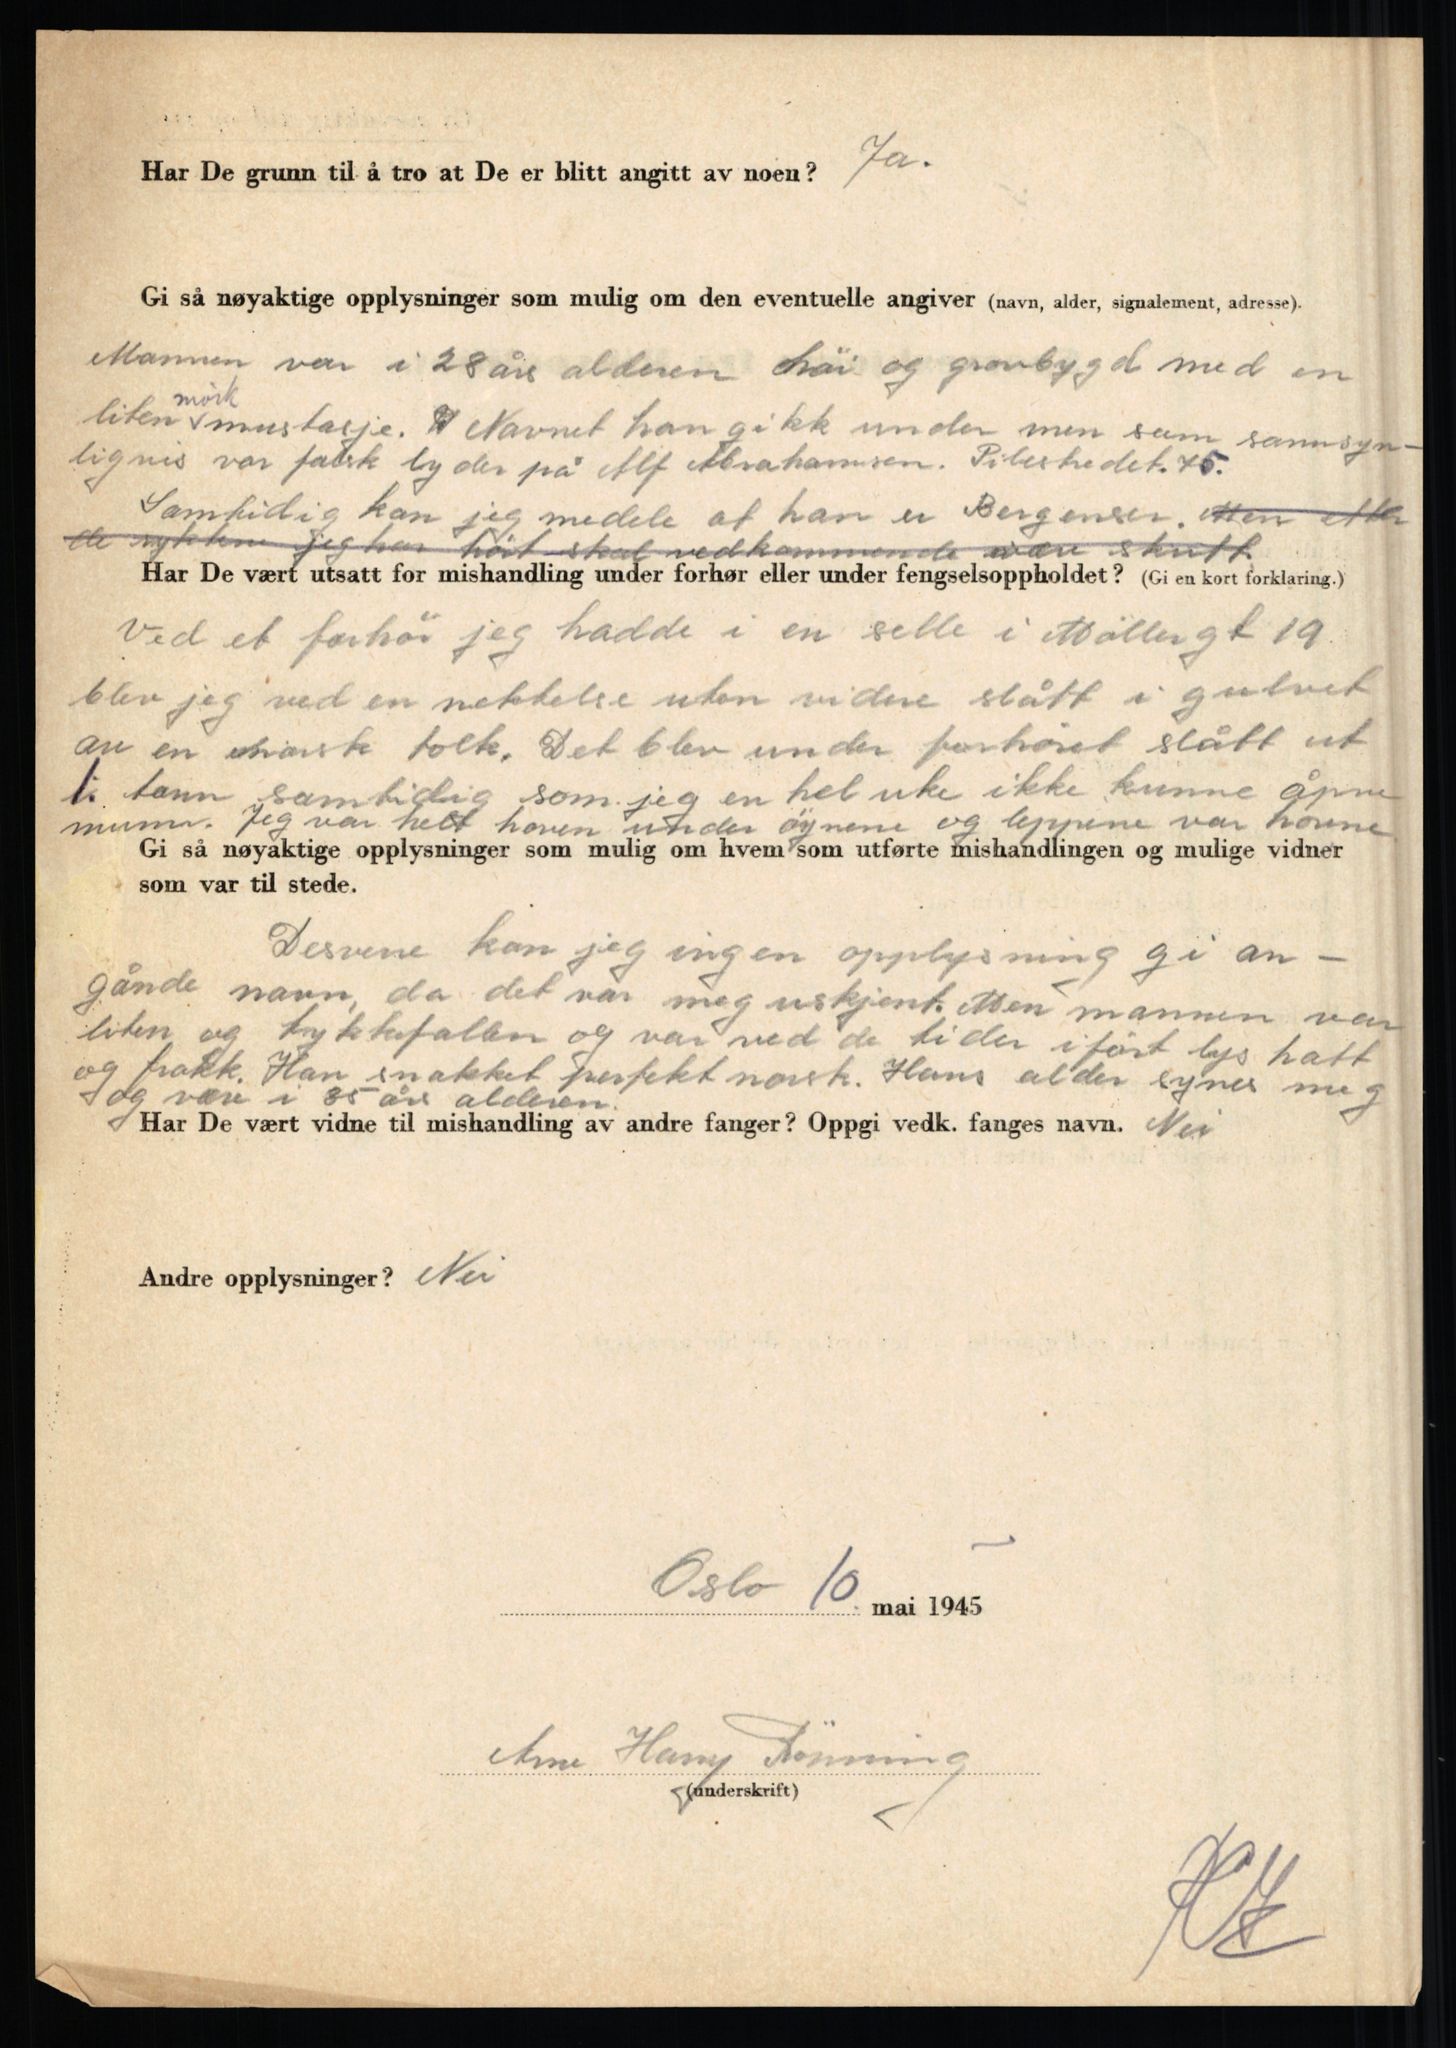 Har De grunn til å tro at De er blitt angitt av noen? Ja.
Gi så nøyaktige opplysninger som mulig om den eventuelle angiver (navn, alder, signalement, adresse).
Mannen var i 28 års alderen høi og grovbygd med en
mörk
liten mustasje. Navnet han gikk under men som sannsyn-
ligvis var falsk lyder på Alf Abrahamsen. Pilestredet. 75.
Samtidig kan jeg medele at han er Bergenser. Men etter
de ryktene jeg har hört skal vedkommende være skutt.
Har De vært utsatt for mishandling under forhør eller under fengselsoppholdet? (Gi en kort forklaring.)
Ved et forhör jeg hadde i en selle i Möllergt 19
blev jeg ved en nektelse uten videre slått i gulvet
av en norsk tolk. Det blev under forhöret slått ut
1. tann samtidig som jeg en hel uke ikke kunne åpne
munn. Jeg var helt hoven under öynene og leppene var hovne
Gi så nøyaktige opplysninger som mulig om hvem som utførte mishandlingen og mulige vidner
som var til stede.
Desvene kan jeg ingen opplysning gi an-
gånde navn, da det var meg uskjent. Men mannen var
liten og tykkefallen og var ved de tider iført lys hatt
og frakk. Han snakket perfekt norsk. Hans alder synes meg
og være i 35 års alderen.
Har De vært vidne til mishandling av andre fanger? Oppgi vedk. fanges navn. Nei
Andre opplysninger? Nei
Oslo 10. mai 1945
Arne Harry Rönning
(underskrift)